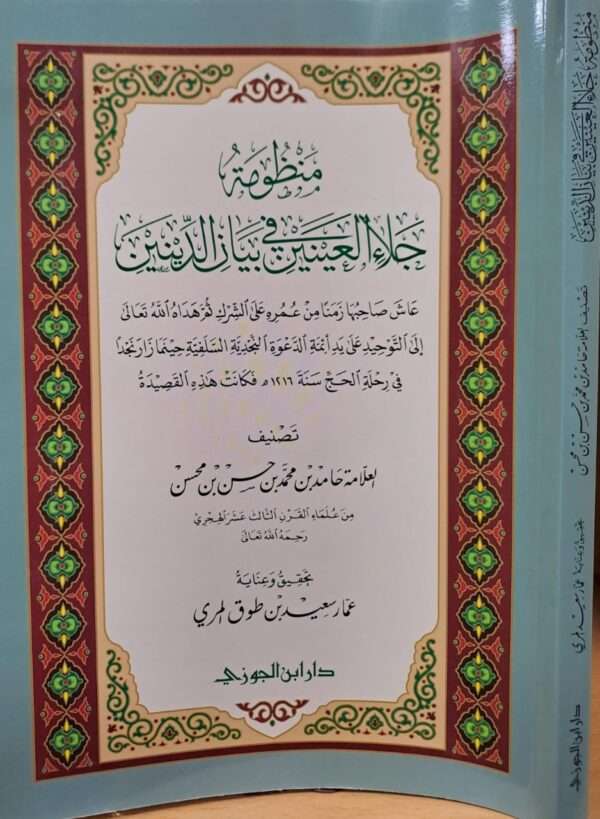 مَنْظُومَةُ
جَلَاءُ الْعَيْنَيْنِ فِي بَيَانِ الدِّينَيْنِ
عَاشَ صَاحِبُهَا زَمَنًا مِنْ عُمُرِهِ عَلَى الشِّرْكِ ثُمَّ هَدَاهُ اللَّهُ تَعَالَى
إِلَى التَّوْحِيدِ عَلَى يَدِ أَئِمَّةِ الدَّعْوَةِ النَّجْدِيَّةِ السَّلَفِيَّةِ حِينَمَا زَارَ نَجْدًا
فِي رِحْلَةِ الْحَجِّ سَنَةَ ١٢١٦ هـ فَكَانَتْ هَذِهِ الْقَصِيدَةُ
تَصْنِيف
العلّامة حامد بن محمّد بن حسن بن محسن
مِنْ عُلَمَاءِ الْقَرْنِ الثَّالِثَ عَشَرَ الْهِجْرِيِّ
رَحِمَهُ اللهُ تَعَالَى
تَحْقِيقُ وَعِنَايَةُ
عمّار سعيد بن طوق المري
دار ابن الجوزي
منظومة جلاء العينين في بيان الدينين
تصنيف العلامة حامد بن محمد بن حسن بن محسن
تحقيق وعناية عمار سعيد المري
دار ابن الجوزي